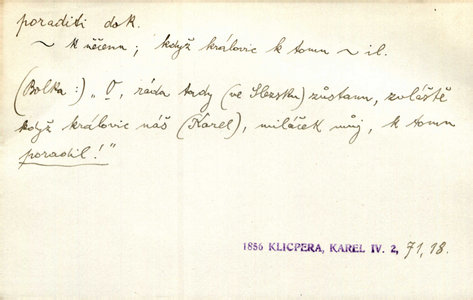 poraditi dok.
~ k něčemu; když králevic k tomu ~il.
(Bolka:) „O, ráda tudy (ve Slezsku) zůstanu, zvláště
když králevic náš (Karel), miláček můj, k tomu
poradil!"
1856 KLICPERA, KAREL IV. 2, 71, 18.